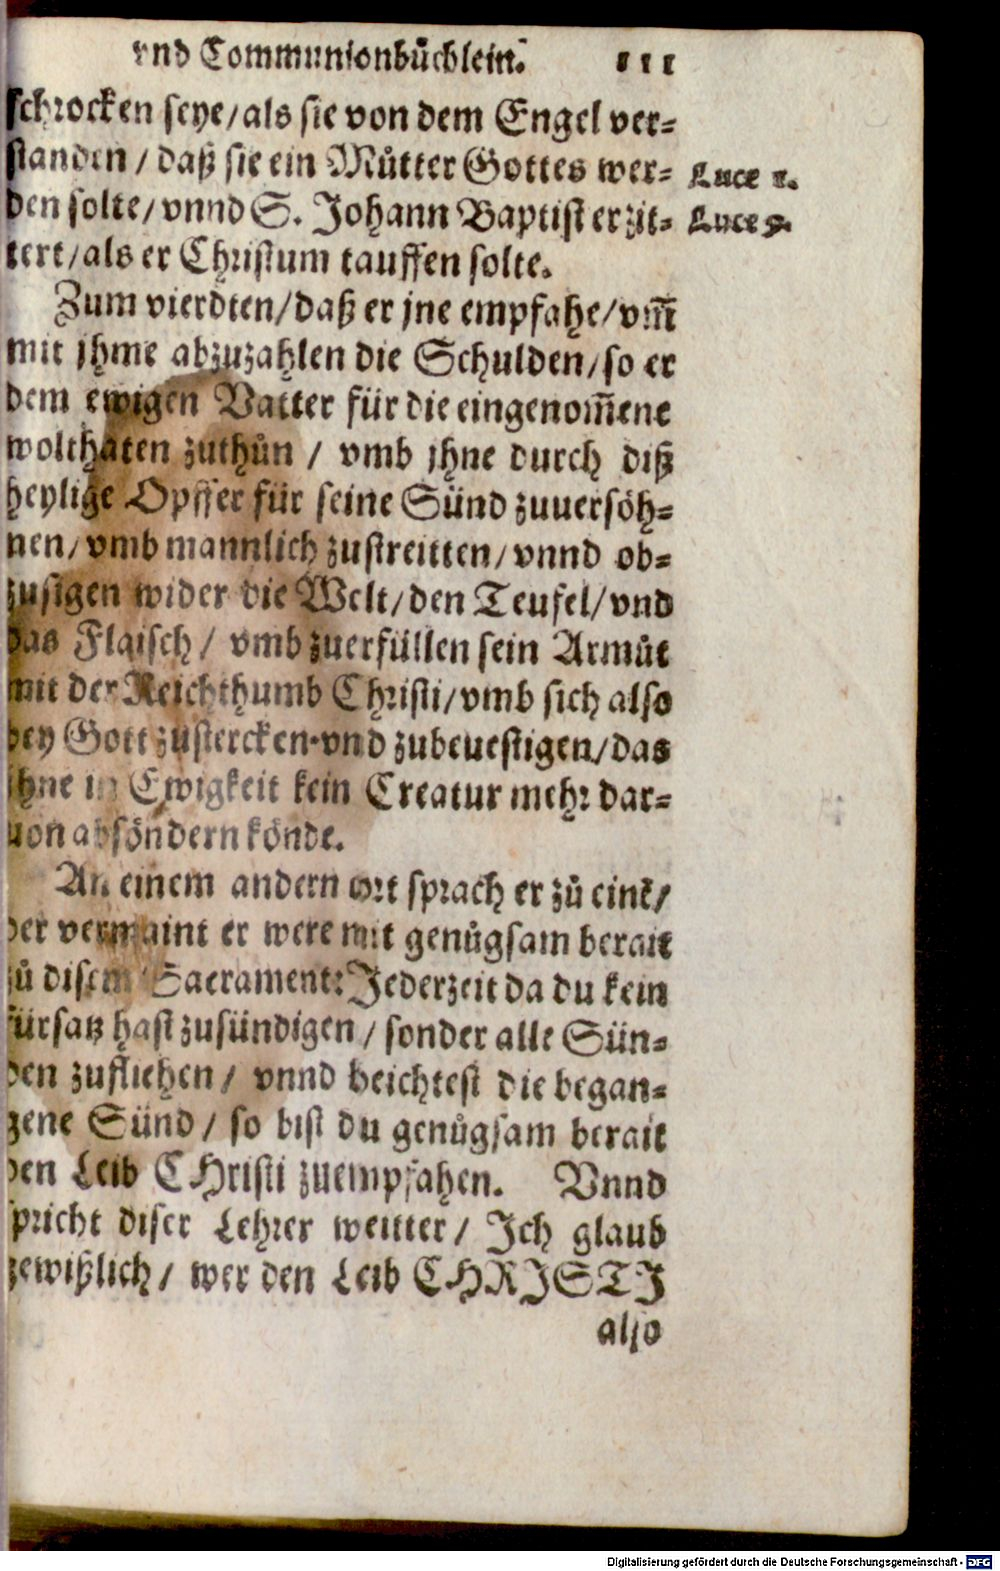 vnd Communionbuͤchlein. 111
schrocken seye/als sie von dem Engel ver-
standen / daß sie ein Muͤtter Gottes wer- Luce 1.
den solte/ vnnd S. Johann Baptist erzit- Luce 9.
tert/als er Christum tauffen solte.
Zum vierdten/daß er jne empfahe/vm̃
mit jhme abzuzahlen die Schulden/so er
dem ewigen Vatter für die eingenom̃ene
wolthaten zuthuͦn / vmb jhne durch diß
heylige Opffer für seine Sünd zuuersöh-
nen/ vmb mannlich zustreitten/ vnnd ob-
zusigen wider die Welt/den Teufel/vnd
das Flaisch/ vmb zuerfüllen sein Armuͦt
mit der Reichthumb Christi/vmb sich also
bey Gott zustercken vnd zubeuestigen/das
jhne in Ewigkeit kein Creatur mehr dar-
uon absöndern könde.
An einem andern ort sprach er zuͦ einẽ/
der vermaint er were nit genuͦgsam berait
zuͦ disem Sacrament: Jederzeit da du kein
fürsatz hast zusündigen / sonder alle Sün-
den zufliehen/ vnnd beichtest die began-
gene Sünd/ so bist du genuͦgsam berait
den Leib CHristi zuempfahen. Vnnd
spricht diser Lehrer weitter/ Ich glaub
gewißlich/ wer den Leib CHRISTI
also
Digitalisierung gefördert durch die Deutsche Forschungsgemeinschaft - DFG